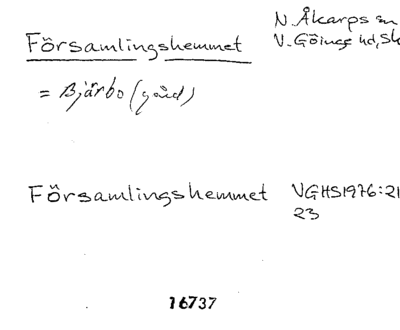 N. Åkarps sn
Församlingshemmet V. Göinge hd, Sk
= Bjärbo (gård)
Församlingshemmet VGHS1976:21
23
16737